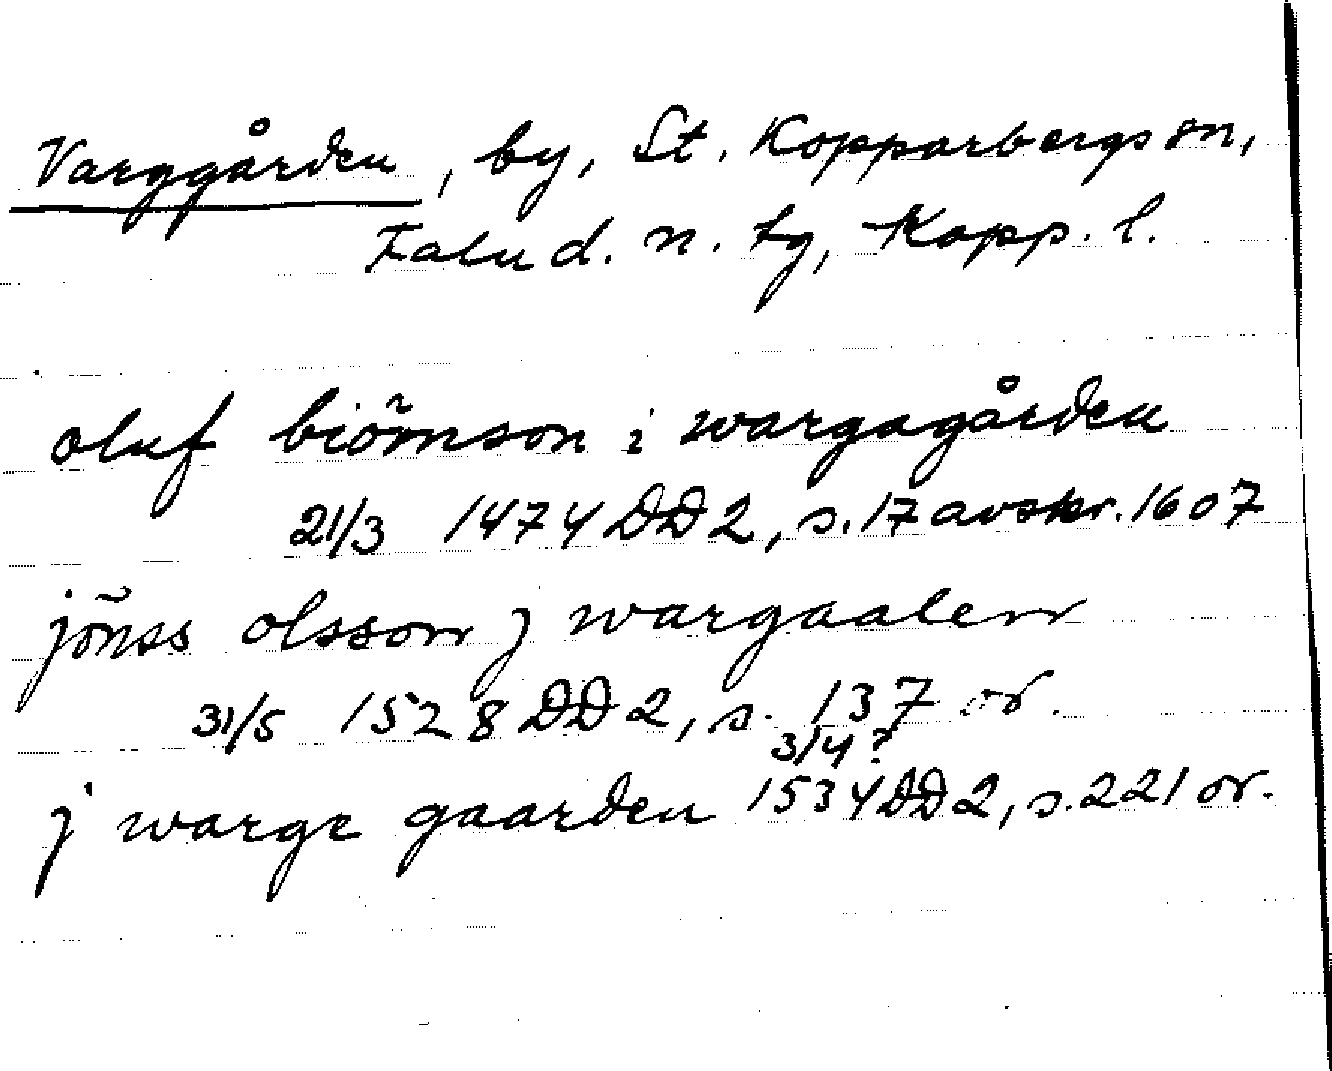 Varggården, by, St. Kopparbergs sn,
Falu d. n. tg, Kopp. l.
oluf biörnson i wargagården
21/3 1474 DD 2, s. 17 avskr. 1607
jönss olsson j wargaalen
31/5 1528 DD 2, s. 137 or.
3/4?
j warge gaarden 1534 DD 2, s. 221 or.